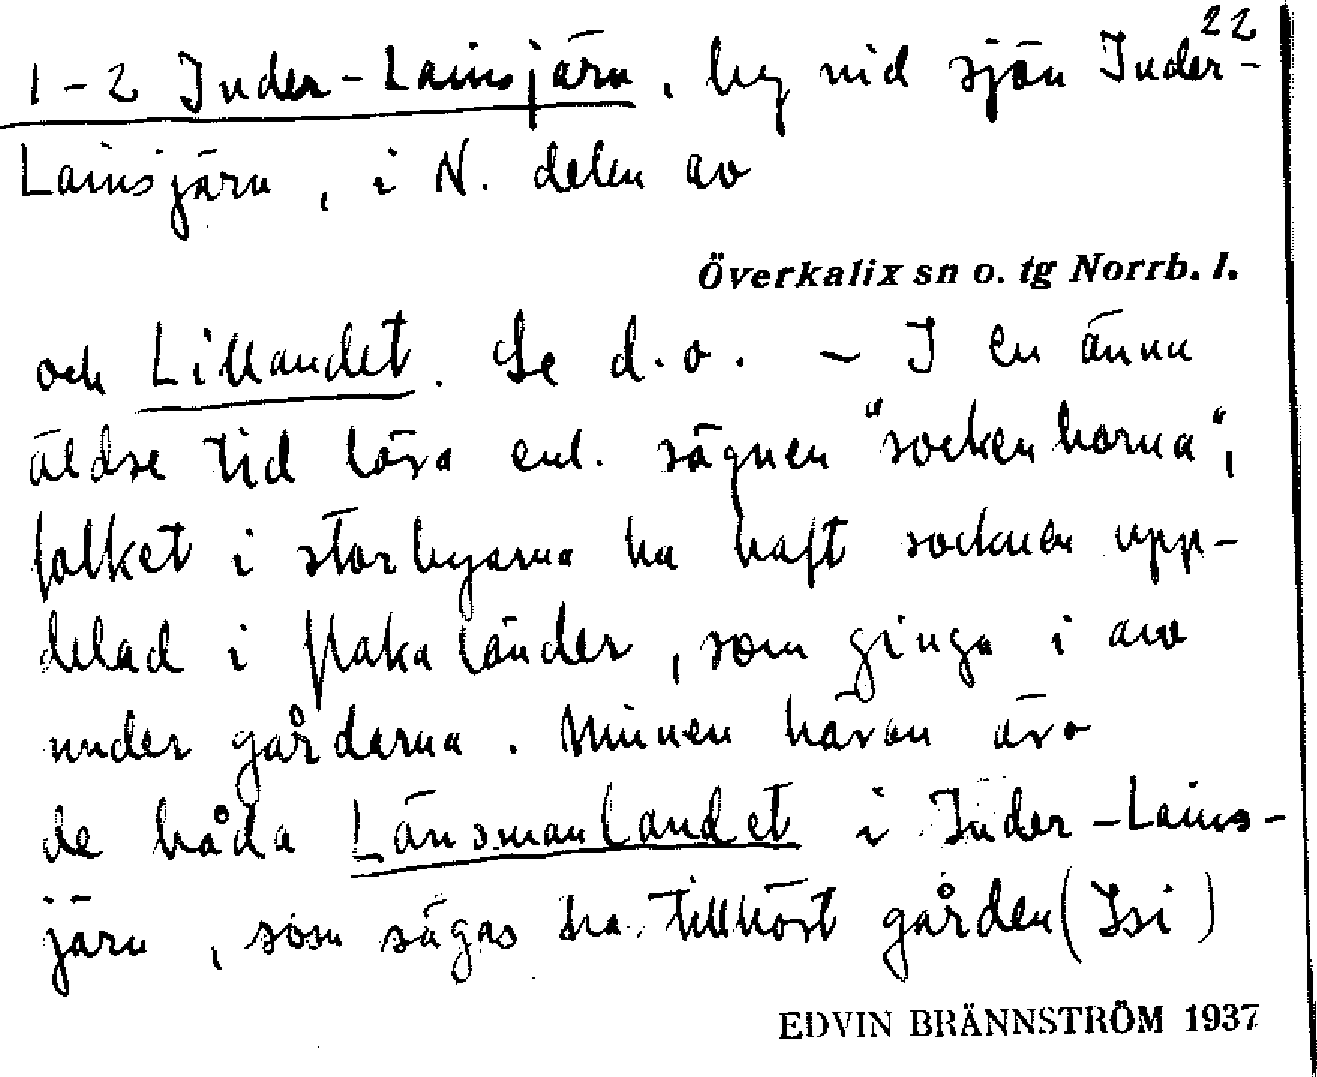 22
1-2 Inder-Lainsjärn, by vid sjön Inder-
Lainsjärn, i N. delen av
Överkalix sn o. tg Norrb. l.
och Lillandet. Se d.o. - I en ännu
äldre tid lära enl. sägnen "sockenborna",
folket i storbyarna ha haft socknen upp-
delad i flakaländer, som gingo i arv
under gårdarna. Minnen härav äro
de båda Länsmanlandet i Inder-Lains-
järn, som sägas ha tillhört gården (Isi)
EDVIN BRÄNNSTRÖM 1937